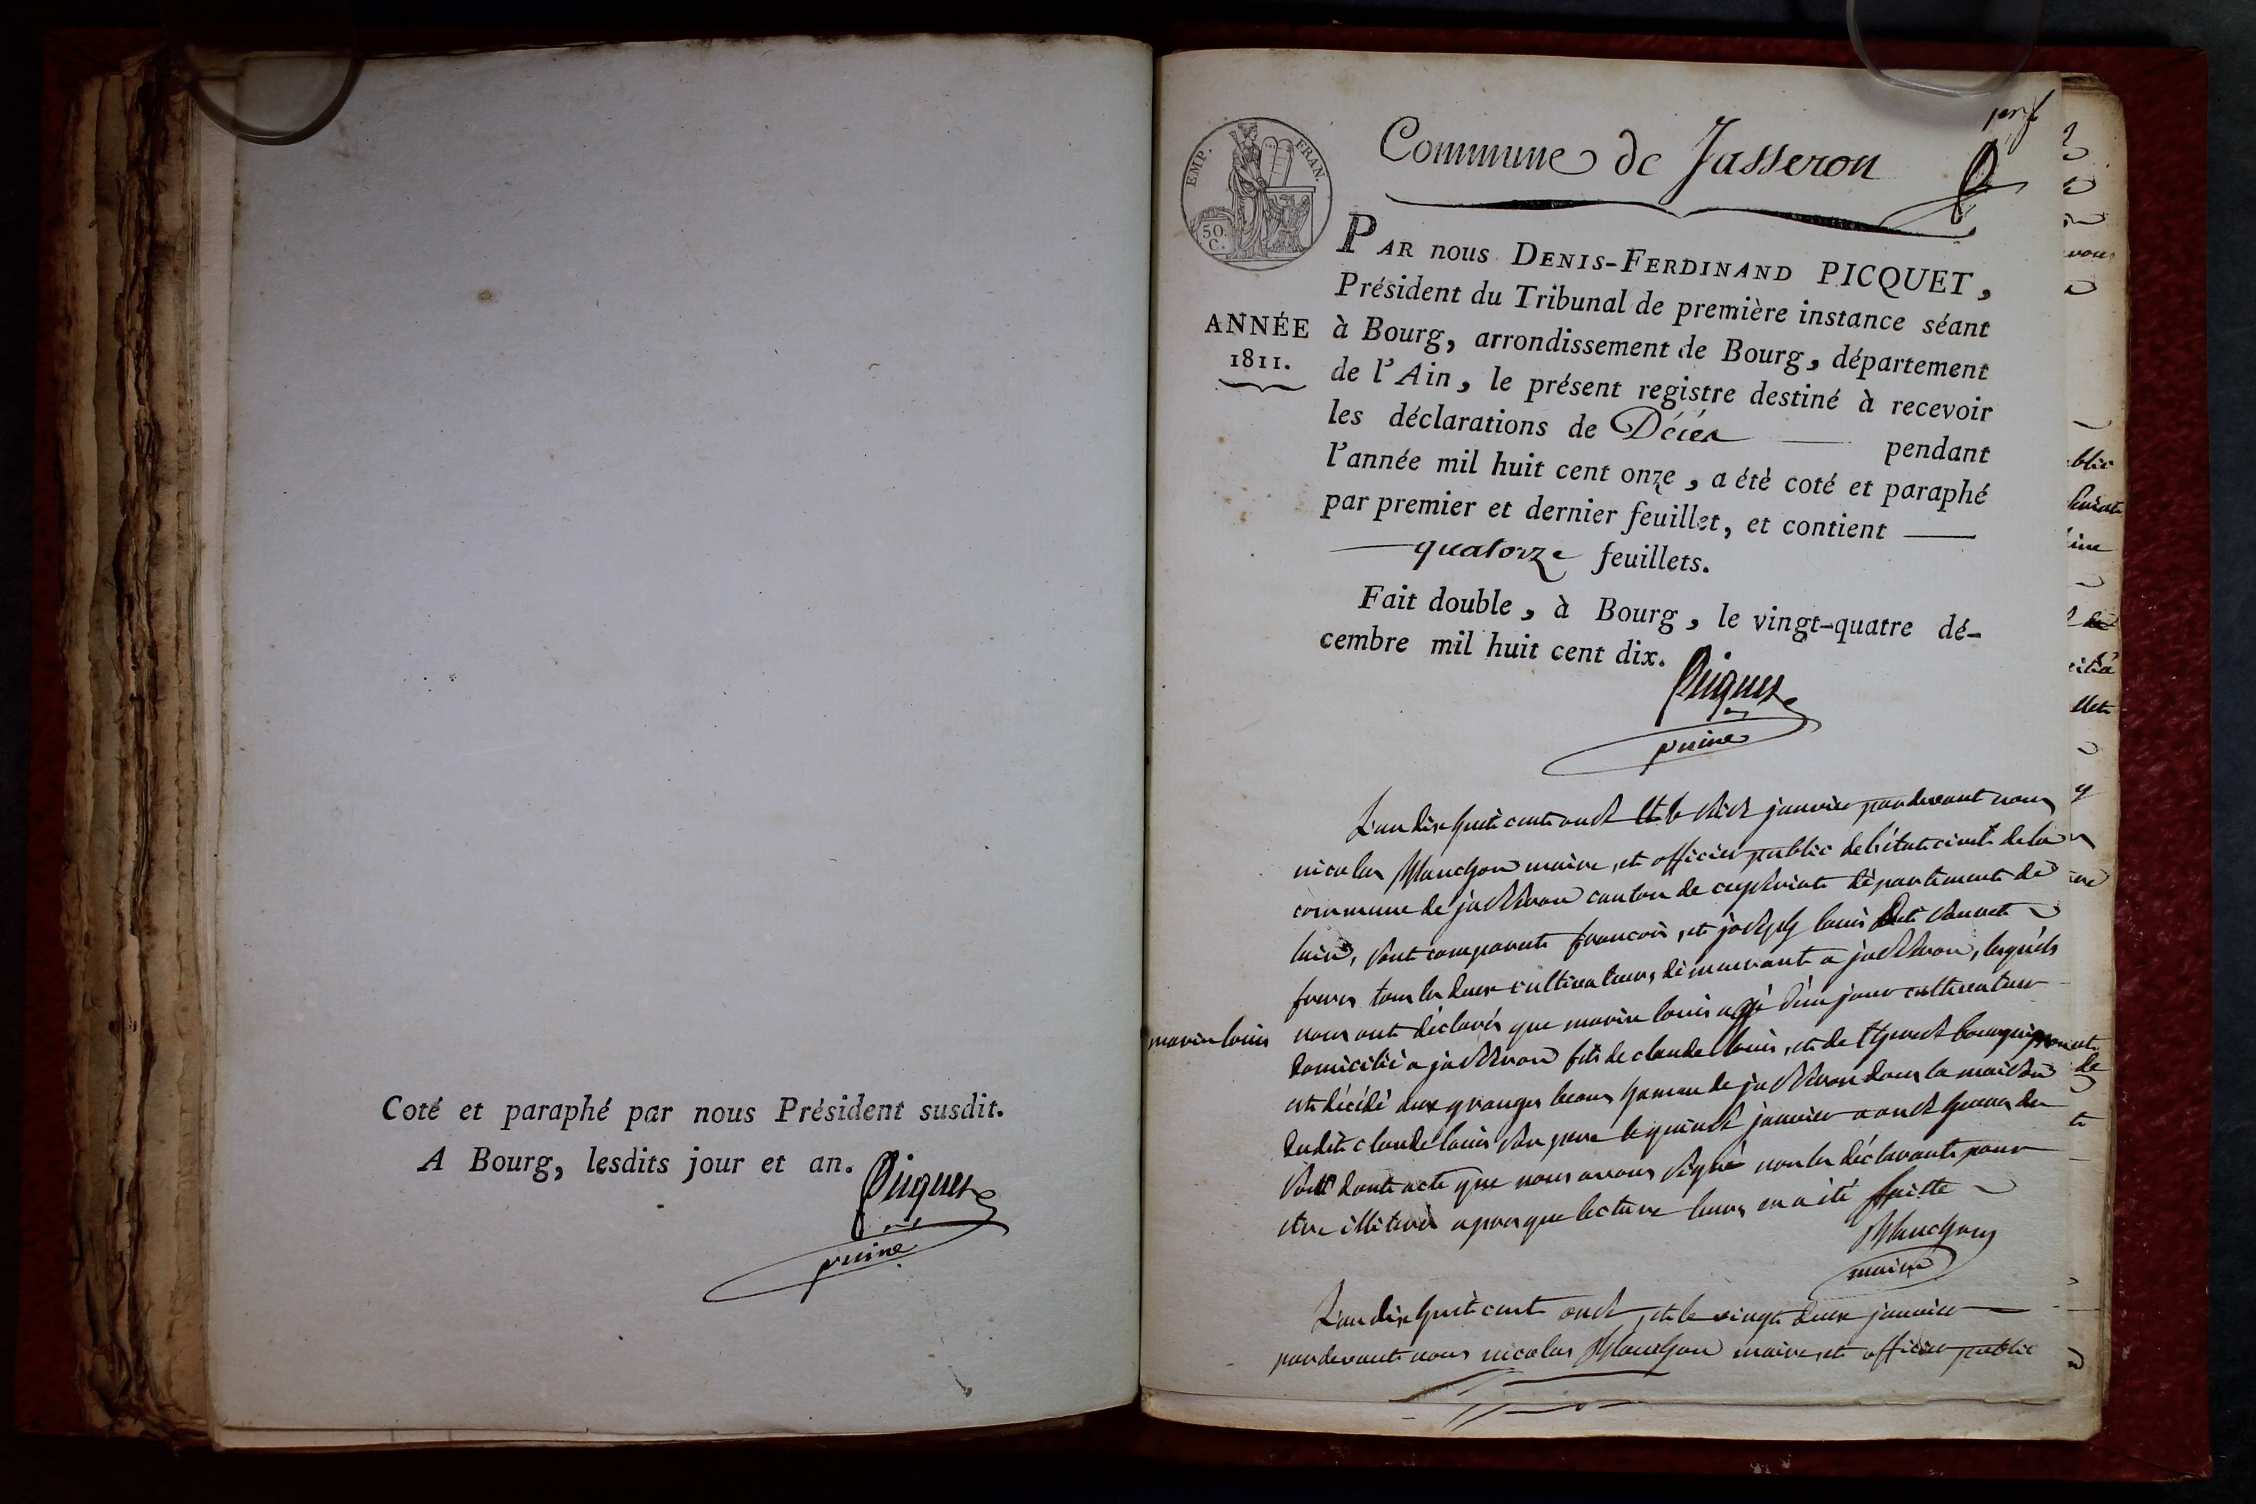 Coté et paraphé par nous Président susdit.
A Bourg, lesdits jour et an.
Picquet
puiné
EMP. FRAN.
50.
C.
Commune de Jasseron
ANNÉE
1811.
PAR nous DENIS-FERDINAND PICQUET,
Président du Tribunal de première instance séant
à Bourg, arrondissement de Bourg, département
de l'Ain, le présent registre destiné à recevoir
les déclarations de Décès pendant
l'année mil huit cent onze, a étè coté et paraphé
par premier et dernier feuillet, et contient
quatorze feuillets.
Fait double, à Bourg, le vingt-quatre dé-
cembre mil huit cent dix.
Picquet
puiné
L'an dix huit cent onze et le seize janvier pardevant nous
nicolas Blanchon maire, et officier public de l'état civil de la
commune de jasseron canton de ceyseriat département de
lain, sont comparut francois, et joseph louis
freres tous les deux cultivateurs, démeurant a jasseron, lesquels
nous ont déclarés que marin louis agé d'un jour cultivateur
marin louis
domicilié a jasseron fils de claude louis, et de bourguignon
est décédé aux granges hameau de jasseron dans la maison de
dudit claude louis son pere le quinze janvier a onze heures du
soir dont acte que nous avons signé non les déclarants pour
etre illiteré apres que lecture leurs en a été faitte
Blanchon
maire
L'an dix huit cent onze, et le vingt deux janvier
pardevant nous nicolas Blanchon maire, et officier public